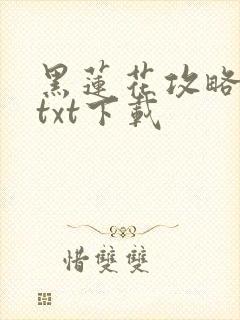 黑蓮花攻略
txt下載
惜雙雙